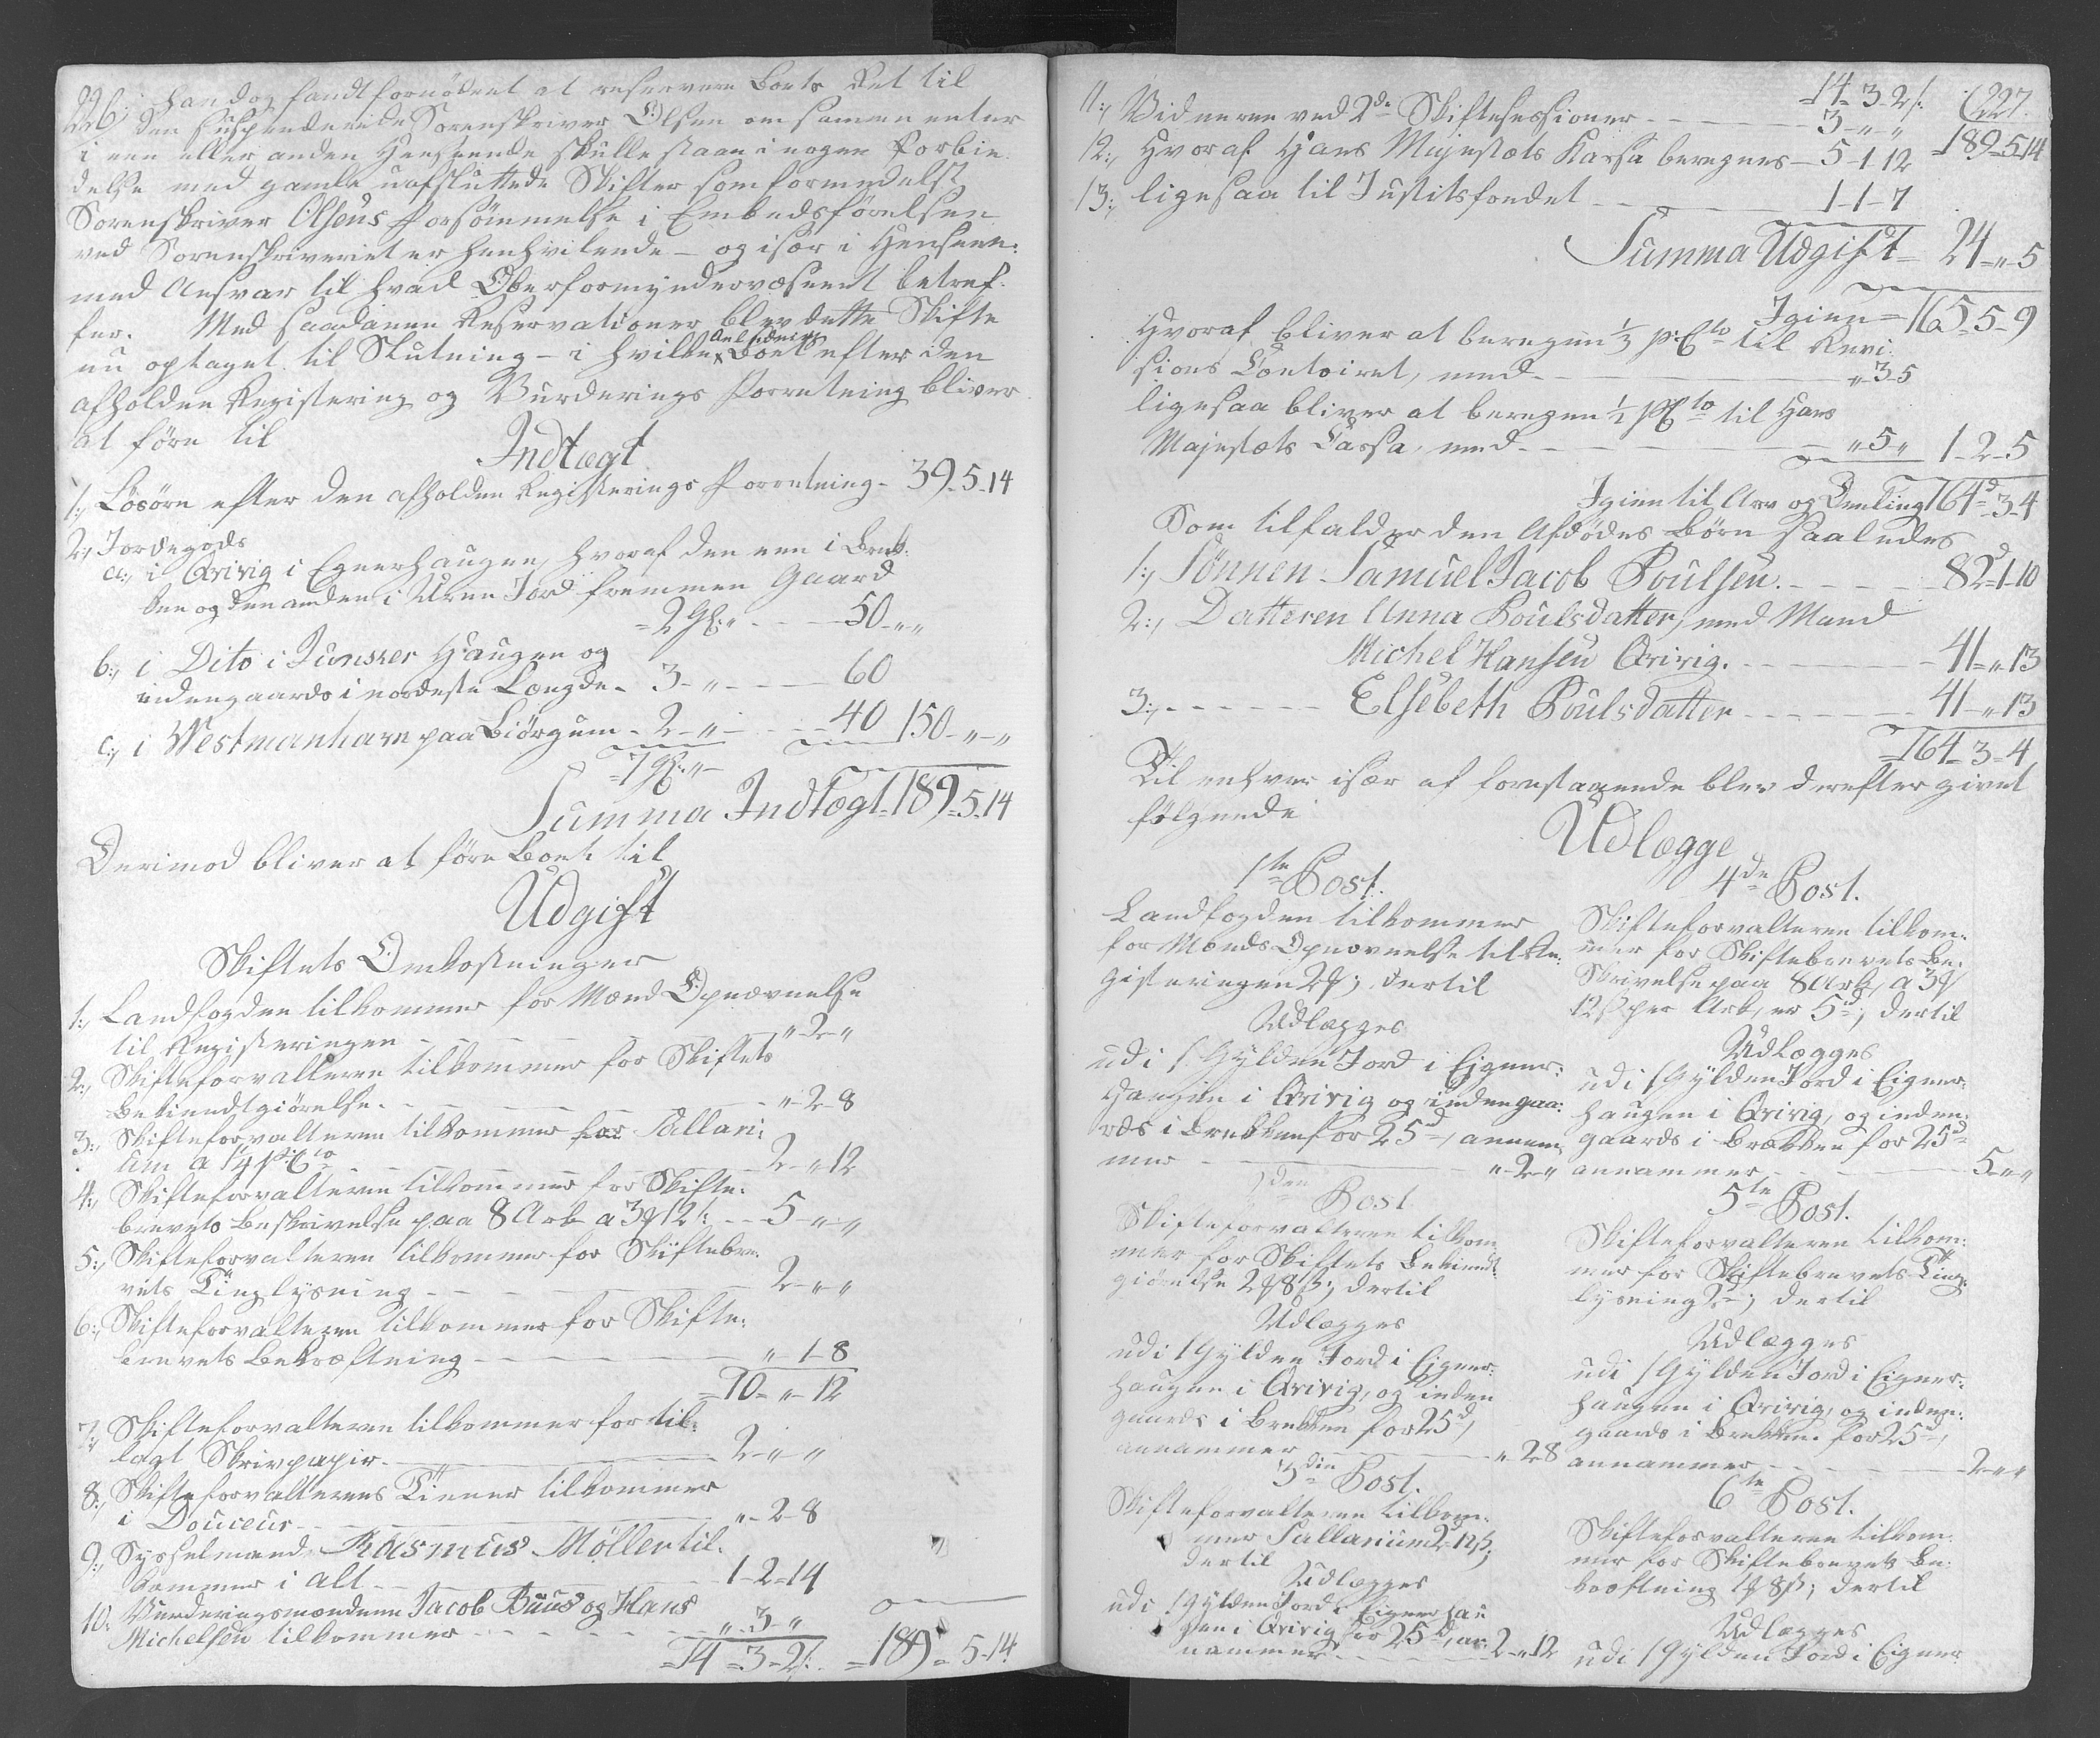 226.
han dog fandt fornødent at reservere Boets Ret til
den suspenderede Sorenskriver Olsen om samme enten
i een eller anden Henseende skulle staae i nogen Forbin
delse med gamle uafsluttede Skifter som formedelst
Sorenskriver Olsens Forsømmelse i Embedsførelsen
ved Sorenskriveriet er henhvilende – og især i Henseen:
med Ansvar til hvad Oberformyndervæsenet betref-
fer. Med saadanne Reservationer blev dette Skifte
nu optaget til Slutning – i hvilken Anledning Boet efter den
afholdne Registering og Vurderings Forretning bliver
at føre til
Indtægt
1:, Løsøre efter den afholdne Registerings Forretning - 39-5-14
2:, Jordegods
a:, i Qvivig i Egnerhaugen, hvoraf den een i Bræk:
ken og den anden i Uren Jord fremmen Gaard
= 2 Gl: „ - - - 50-„-„
b:, i Dito i Junsker Haugen og
indengaards i nordeste Længde - 3-„ - - 60
c:, i Westmanhavn paa Biørgum - 2-„- - - 40 150-„-„
= 7 Gl: „-
Summa Indtægt = 189-5-14
Derimod bliver at føre Boet til
Udgift
Skiftets Omkostninger
1:, Landfogden tilkommer for Mænds Opnævnelse
til Registeringen - - - „-2-„
2:, Skifteforvalteren tilkommer for Skiftets
Bekiendtgiørelse - - - „-2-8
3:, Skifteforvalteren tilkommer for Sallari:
um a 1¼ p Cto - - - 2-„-12
4:, Skifteforvalteren tilkommer for Skifte:
brevets Beskrivelse paa 8 Ark a 3 ₰ 12 s: - - 5-„-„
5:, Skifteforvalteren tilkommer for Skiftebre:
vets Tinglysning - - - 2-„-„
6:, Skifteforvalteren tilkommer for Skifte:
brevets Bekræftning - - - „-1-8
= 10-„-12
7:, Skifteforvalteren tilkommer for til:
lagt Skrivpapir - - - 2-„-„
8:, Skifteforvalterens Tiener tilkommer
i Douceur - - - „-2-8
9:, Sysselmand Rasmus Møller til:
kommer i alt - - - 1-2-14
10: Vurderingsmændene Jacob Buus og Hans
Michelsen tilkommer - - - „-3-„
= 14-3-2 s: = 189-5-14
227.
= 14-3-2 s:
11:, Vidnerne ved 2de Skiftesessioner - - - 3-„-„ = 189-5-14
12:, Hvoraf Hans Majestæts Kassa beregnes - 5-1-12
13:, ligesaa til Justitsfondet - - - 1-1-7
Summa Udgift = 24-„-5
Igien = 165-5-9
Hvoraf bliver at beregne ⅓ p: Cto til Revi:
sions Contoiret, med - - - „-3-5
ligesaa bliver at beregne ½ p Cto til Hans
Majestæts Cassa, med - - - „-5-„ 1-2-5
Igien til Arv og Deeling 164d-3-4
Som tilfalder den Afdødes Børn saaledes
1:, Sønnen Samuel Jacob Poulsen. - - - 82d-1-10
2:, Datteren Anna Poulsdatter, med Mand
Michel Hansen Qvivig. - - - 41-„-13
3:, - - - Elsebeth Poulsdatter - - - 41-„-13
= 164-3-4
Til enhver især af forestaaende blev derefter givet
følgende
Udlægge
1ste Post.
Landfogden tilkommer
for Mænds Opnævnelse til Re:
gisteringen 2 ₰; dertil
Udlægges
udi 1 Gylden Jord i Eigner:
haugen i Qvivig og indengaa:
rds i Brækken for 25d, annam
mer - - - „-2-„
2den Post
Skifteforvalteren tilkom
mer for Skiftets Bekiendt:
giørelse 2 ₰ 8 s; dertil
Udlægges
udi 1 Gylden Jord i Eigner:
haugen i Qvivig, og inden
gaards i Brekken for 25d,
annammer - - - „-2-8
3die Post.
Skifteforvalteren tilkom:
mer Sallarium 2d 12 s;
dertil
Udlægges
udi 1 Gylden Jord i Eignerhau
gen i Qvivig for 25d, an:
nammer - - - 2-„-12
4de Post.
Skifteforvalteren tilkom:
mer for Skiftebrevets Be:
skrivelse paa 8 Ark, a 3 ₰
12 s per Ark, er 5d; dertil
Udlægges
udi 1 Gylden Jord i Eigner:
haugen i Qvivig, og inden:
gaards i Brækken for 25d
annammer - - - 5-„-„
5te Post.
Skifteforvalteren tilkom:
mer for Skiftebrevets Ting:
lysning 2d; dertil
Udlægges
udi 1 Gylden Jord i Eigner:
haugen i Qvivig, og inden:
gaards i Brekken for 25d,
annammer - - - 2-„-„
6te Post.
Skifteforvalteren tilkom:
mer for Skiftebrevets Be:
kræftning 1 ₰ 8 s; dertil
Udlægges
udi 1 Gylden Jord i Eigner